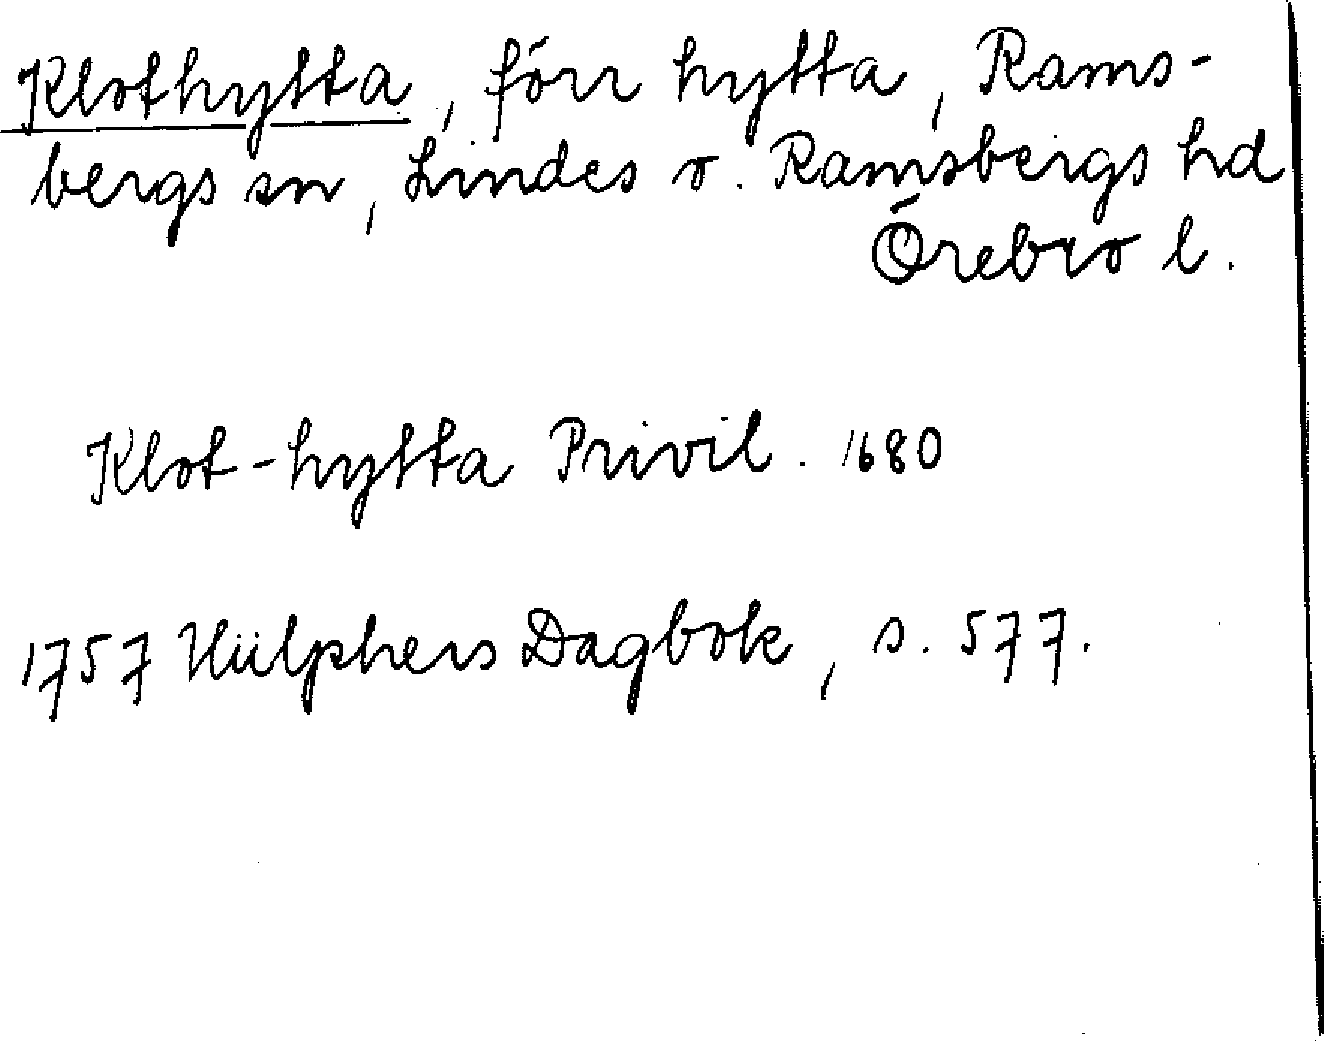 Klothytta, förr hytta, Rams-
bergs sn, Lindes o. Ramsbergs hd
Örebro l.
Klot-hytta Privil. 1680
1757 Hülphers Dagbok, s. 577.